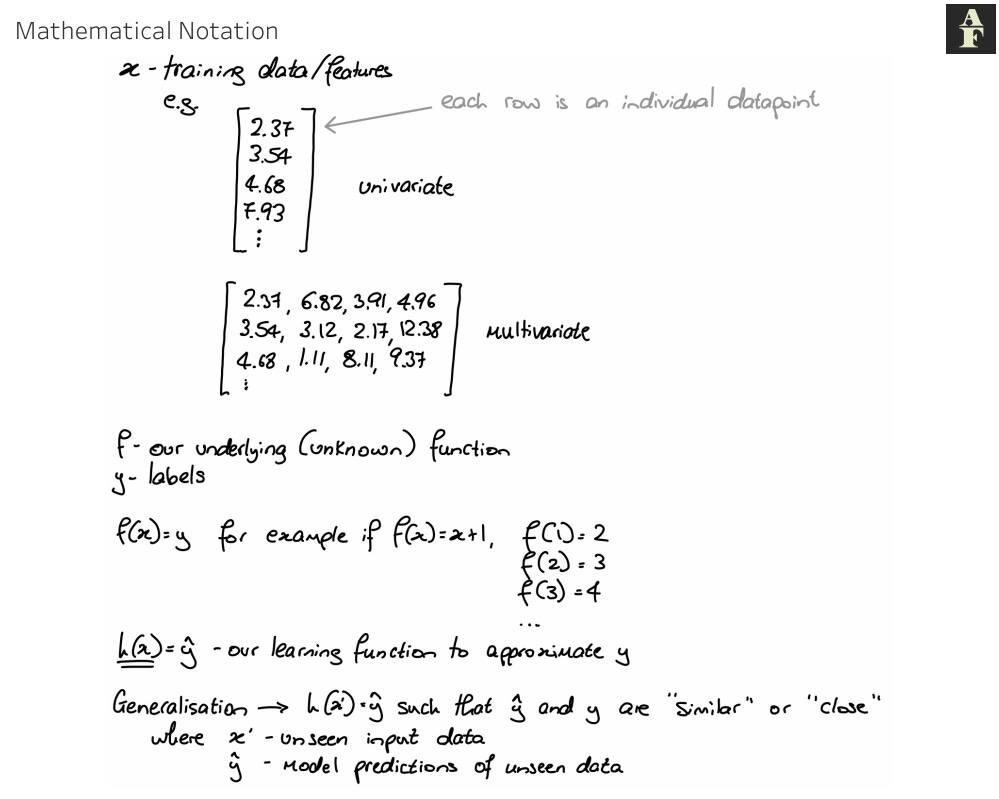 Mathematical Notation
AF
x - training data/features
e.g.
each row is an individual datapoint
2.37
3.54
4.68
7.93
⋮
univariate
2.37, 6.82, 3.91, 4.96
3.54, 3.12, 2.17, 12.38
4.68, 1.11, 8.11, 9.37
⋮
Multivariate
f - our underlying (unknown) function
y - labels
f(x)=y for example if f(x)=x+1, f(1)=2
f(2)=3
f(3)=4
...
h(x)=ŷ - our learning function to approximate y
Generalisation → h(x')=ŷ such that ŷ and y are "similar" or "close"
where x' - unseen input data
ŷ - model predictions of unseen data